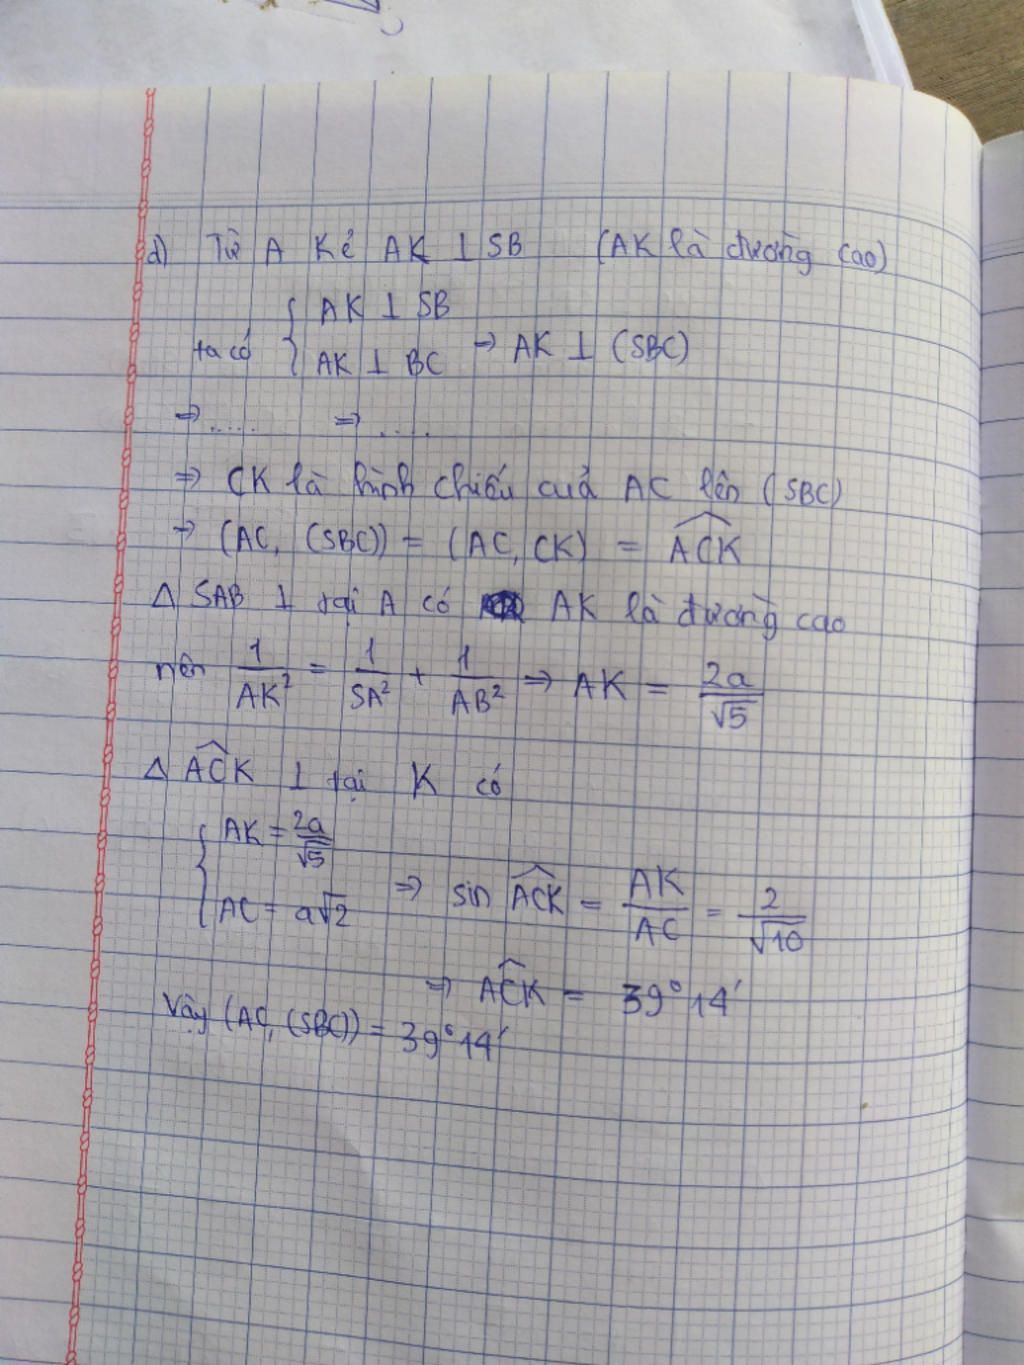 d) Từ A kẻ AK ⊥ SB (AK là đường cao)
ta có { AK ⊥ SB
AK ⊥ BC ⇒ AK ⊥ (SBC)
⇒ ..... ⇒ ....
⇒ CK là hình chiếu của AC lên (SBC)
⇒ (AC, (SBC)) = (AC, CK) = \widehat{ACK}
Δ SAB ⊥ tại A có AK là đường cao
nên 1/AK² = 1/SA² + 1/AB² ⇒ AK = 2a/√5
Δ \widehat{ACK} ⊥ tại K có
{ AK = 2a/√5
AC = a√2 ⇒ sin \widehat{ACK} = AK/AC = 2/√10
⇒ \widehat{ACK} = 39°14'
Vậy (AC, (SBC)) = 39°14'